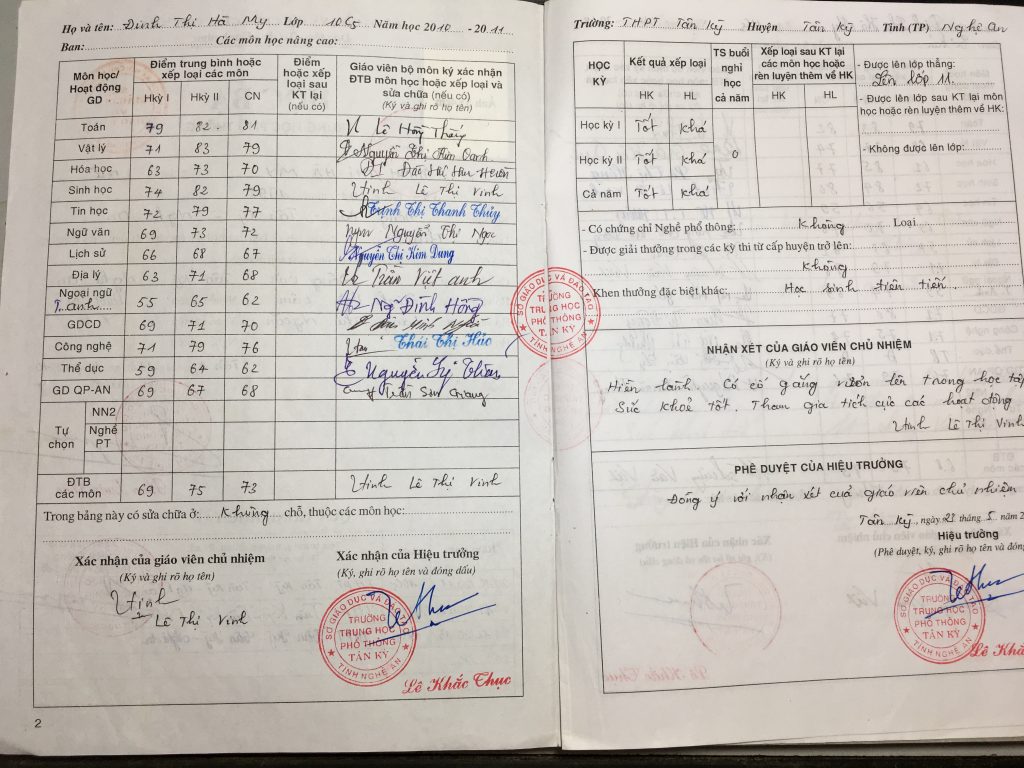 Họ và tên: Đinh Thị Hà My Lớp 10C5 Năm học 2010 - 2011
Ban: Các môn học nâng cao:
Môn học/ Hoạt động GD Điểm trung bình hoặc xếp loại các môn Điểm hoặc xếp loại sau KT lại (nếu có) Giáo viên bộ môn ký xác nhận ĐTB môn học hoặc xếp loại và sửa chữa (nếu có) (Ký và ghi rõ họ tên)
Hkỳ I Hkỳ II CN
Toán 79 82 81 Lê Hồng Thăng
Vật lý 71 83 79 Nguyễn Thị Kim Oanh
Hóa học 63 73 70
Sinh học 74 82 79 Vinh Lê Thị Vinh
Tin học 72 79 77 Trịnh Thị Thanh Thủy
Ngữ văn 69 73 72 Nguyễn Thị Ngọc
Lịch sử 66 68 67 Nguyễn Thị Kim Dung
Địa lý 63 71 68 Trần Việt anh
Ngoại ngữ T.anh 55 65 62 Ngũ Đình Hồng
GDCD 69 71 70
Công nghệ 71 79 76 Thái Thị Hảo
Thể dục 59 64 62 Nguyễn
GD QP-AN 69 67 68 Trần
Tự chọn NN2
Nghề PT
ĐTB các môn 69 75 73 Vinh Lê Thị Vinh
Trong bảng này có sửa chữa ở: Không chỗ, thuộc các môn học:
Xác nhận của giáo viên chủ nhiệm
(Ký và ghi rõ họ tên)
Vinh
Lê Thị Vinh
Xác nhận của Hiệu trưởng
(Ký, ghi rõ họ tên và đóng dấu)
SỞ GIÁO DỤC VÀ ĐÀO TẠO
TRƯỜNG
TRUNG HỌC
PHỔ THÔNG
TÂN KỲ
TỈNH NGHỆ AN
Lê Khắc Thục
2
Trường: THPT Tân Kỳ Huyện Tân Kỳ Tỉnh (TP) Nghệ An
HỌC KỲ Kết quả xếp loại TS buổi nghỉ học cả năm Xếp loại sau KT lại các môn học hoặc rèn luyện thêm về HK
HK HL HK HL
Học kỳ I Tốt Khá
Học kỳ II Tốt Khá 0
Cả năm Tốt Khá
- Được lên lớp thẳng:
Lên lớp 11
- Được lên lớp sau KT lại môn học hoặc rèn luyện thêm về HK:
- Không được lên lớp:
- Có chứng chỉ Nghề phổ thông: Không Loại
- Được giải thưởng trong các kỳ thi từ cấp huyện trở lên:
Không
- Khen thưởng đặc biệt khác: Học sinh tiên tiến
SỞ GIÁO DỤC VÀ ĐÀO TẠO
TRƯỜNG
TRUNG HỌC
PHỔ THÔNG
TÂN KỲ
TỈNH NGHỆ AN
NHẬN XÉT CỦA GIÁO VIÊN CHỦ NHIỆM
(Ký và ghi rõ họ tên)
Hiền lành. Có cố gắng vươn lên trong học tập
Sức khoẻ tốt. Tham gia tích cực các hoạt động
Vinh Lê Thị Vinh
PHÊ DUYỆT CỦA HIỆU TRƯỞNG
Đồng ý với nhận xét của giáo viên chủ nhiệm
Tân Kỳ, ngày 21 tháng 5 năm 2
Hiệu trưởng
(Phê duyệt, ký, ghi rõ họ tên và đóng
SỞ GIÁO DỤC VÀ ĐÀO TẠO
TRƯỜNG
TRUNG HỌC
PHỔ THÔNG
TÂN KỲ
TỈNH NGHỆ AN
Lê Khắc